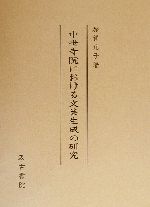 中世寺院における文芸生成の研究
汲古書院